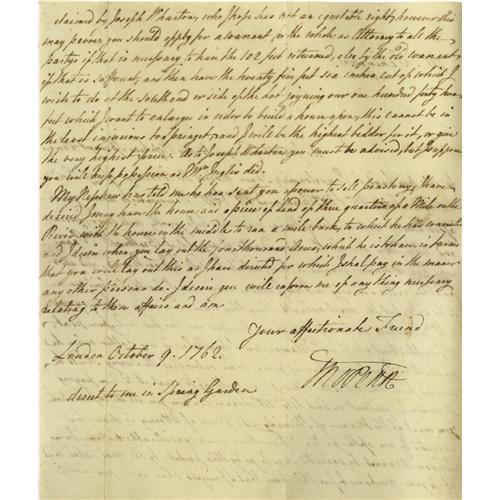 claimed by Joseph Wharton, who I hope has not an equitable right, however this
may prove, you should apply for a warrant, in the whole as Attorney to all the
partys if that is necessary to than the 102 feet returned, else by the old warrant
if that is sufficient, and then have the twenty five feet six inches cut of which I
wish to do at the south end or side of the lot joyning our one hundred forty two
feet which I want to enlarge in order to build a house upon, this cannot be in
the least injurious to a prospect, and I will be the highest bidder for it, or give
the very highest price. As to Joseph Wharton you must be advised, but I suppose
you will keep possession as Mrs. Inglis did.
My Nephew has told me he has sent you a power to sell pensbury, I have
desired I may have the house and a piece of land of three quarters of a Mile on the
River with the house in the middle to run a mile back, to which he has consented
and given when you lay out the one thousand Acres, what he
that you will lay out this as I have directed for which I shall pay in the manner
any other persons do. I desire you will inform me of any thing necessary
relating to these affairs and am
Your affectionate Friend
London October 9. 1762.
direct to me in Spring Garden